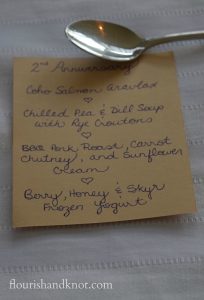 2nd Anniversary
Coho Salmon Gravlax
Chilled Pea & Dill Soup
with Rye Croutons
Pork Roast, Carrot
Chutney, and Sunflower
Cream
Berry, Honey & Skyr
Frozen Yogurt
flourishandknot.com